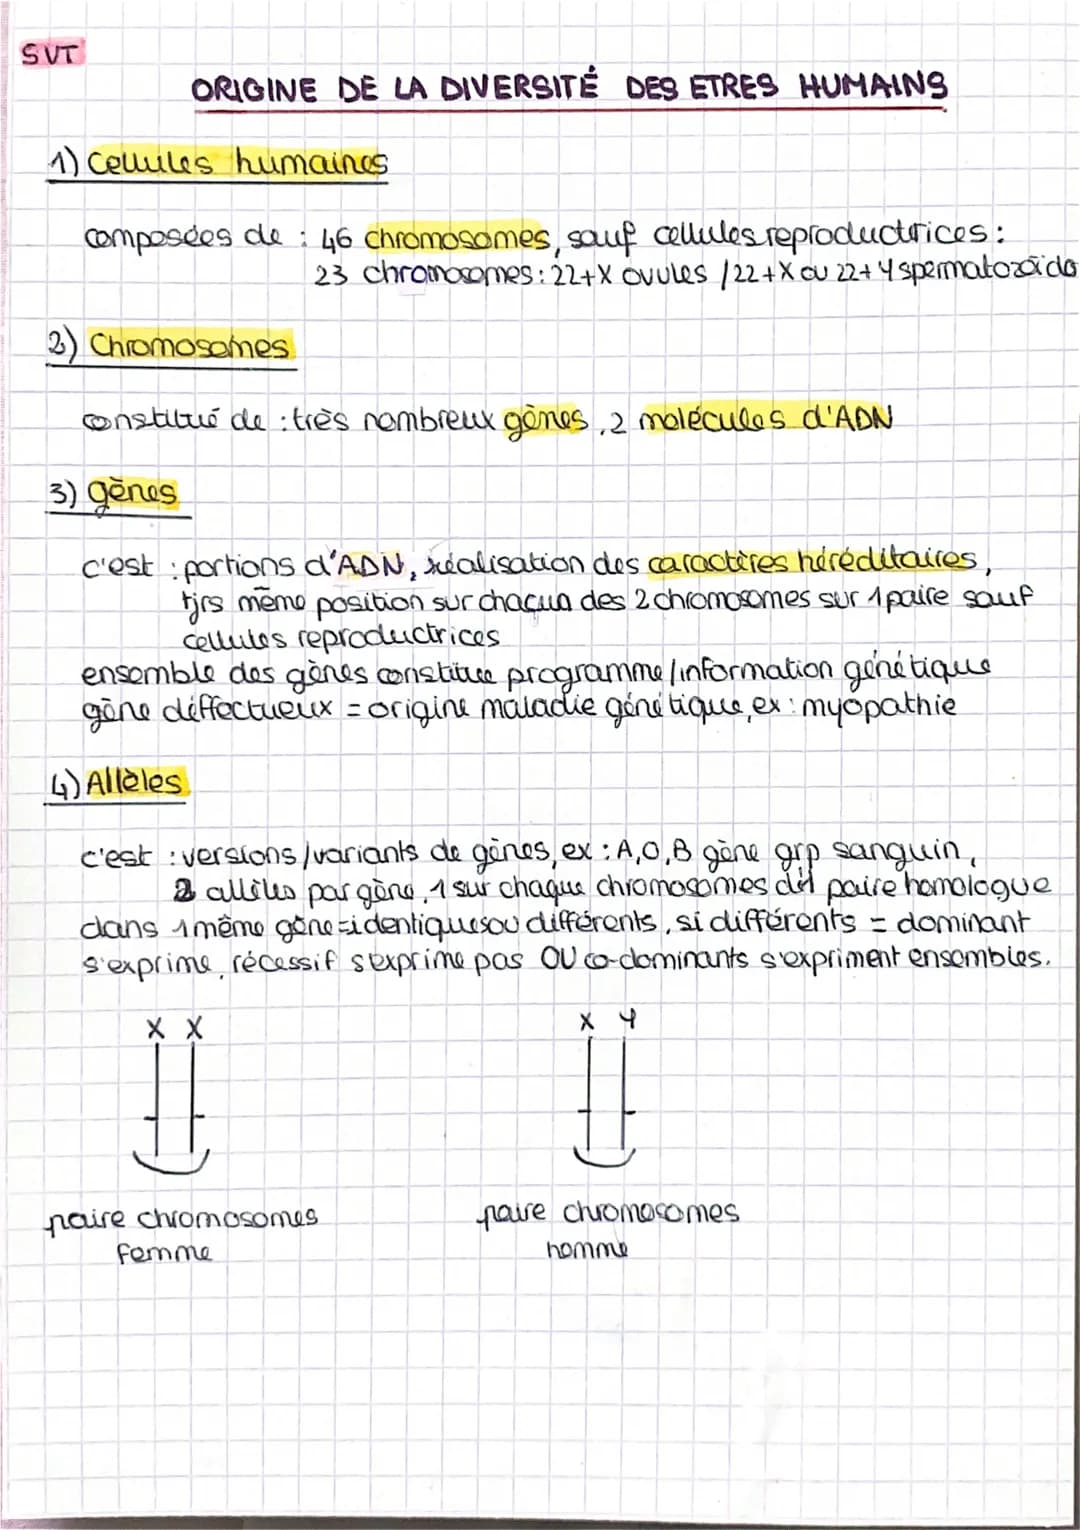 SVT
ORIGINE DE LA DIVERSITÉ DES ETRES HUMAINS
1) Cellules humaines
composées de : 46 chromosomes, sauf cellules reproductrices :
23 chromosomes : 22+X ovules / 22+X ou 22+Y spermatozoïde
2) Chromosomes
constitué de : très nombreux gènes, 2 molécules d'ADN
3) gènes
c'est : portions d'ADN, réalisation des caractères héréditaires,
tjrs même position sur chacun des 2 chromosomes sur 1 paire sauf
cellules reproductrices
ensemble des gènes constitue programme/information génétique
gène déffectueux = origine maladie génétique, ex : myopathie
4) Allèles
c'est : versions/variants de gènes, ex : A,O,B gène grp sanguin,
2 allèles par gène, 1 sur chaque chromosomes d'1 paire homologue
dans 1 même gène = identiques ou différents, si différents = dominant
s'exprime, récessif s'exprime pas OU co-dominants s'expriment ensembles.
X X
X Y
paire chromosomes
femme
paire chromosomes
homme